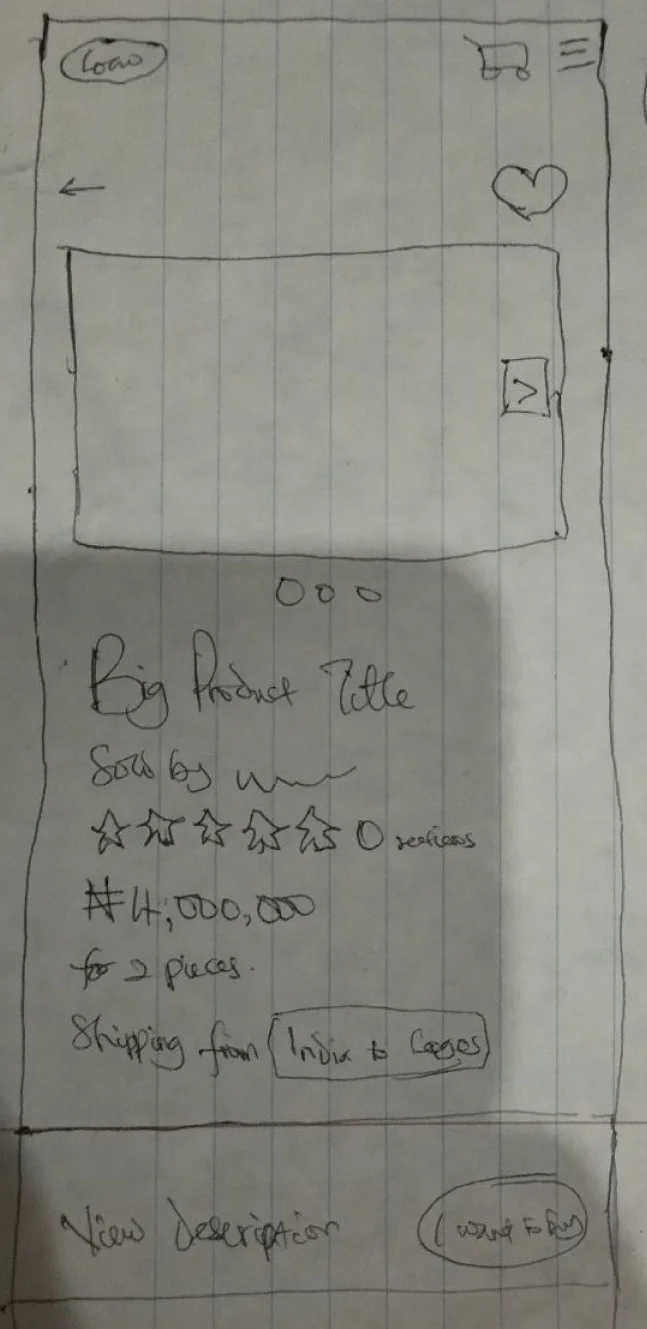 Logo
>
Big Product Title
Sold by
0 reviews
₦4,000,000
for 2 pieces.
Shipping from India to Lagos
View Description
I want to buy